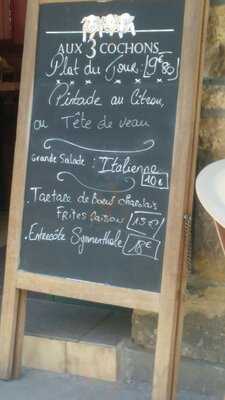 AUX 3 COCHONS
Plat du Jour 9€80
Pintade au Citron,
ou Tête de veau
Grande Salade : Italienne
10€
. Tartare de Boeuf charolais
Frites maison 15€
. Entrecôte Symmenthale
18€